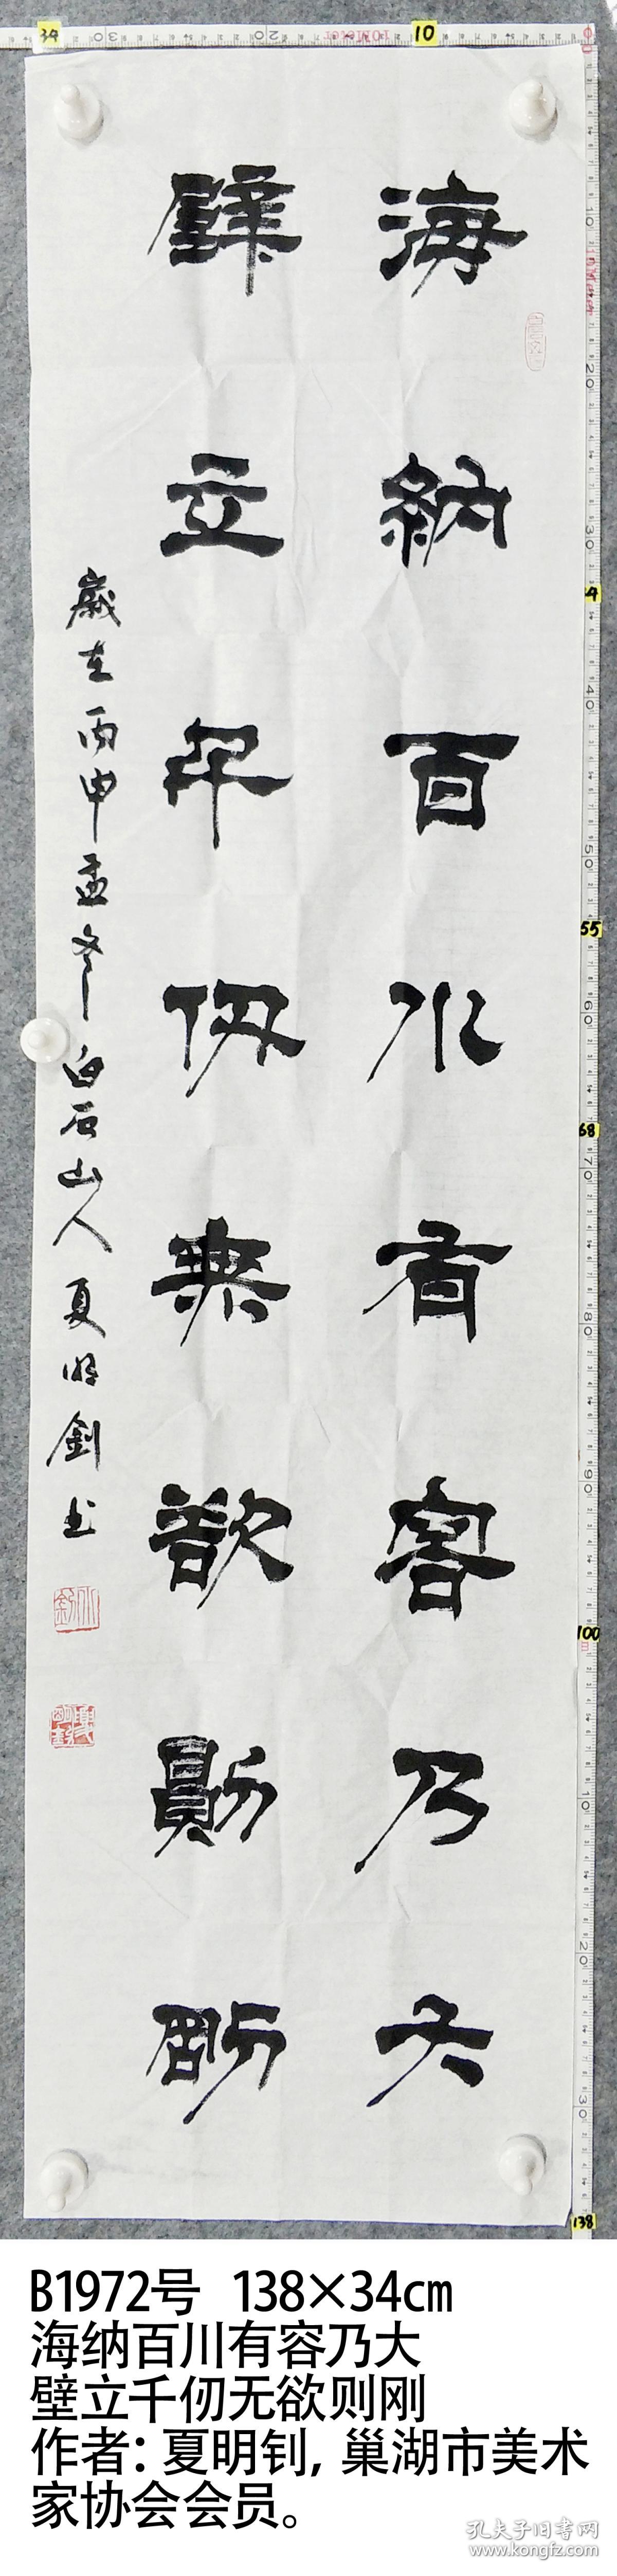 海納百川有容乃大
壁立千仞無欲則剛
歲在丙申孟冬白石山人夏明釗书
B1972号 138×34cm
海纳百川有容乃大
壁立千仞无欲则刚
作者：夏明钊，巢湖市美术
家协会会员。
孔夫子旧书网
www.kongfz.com